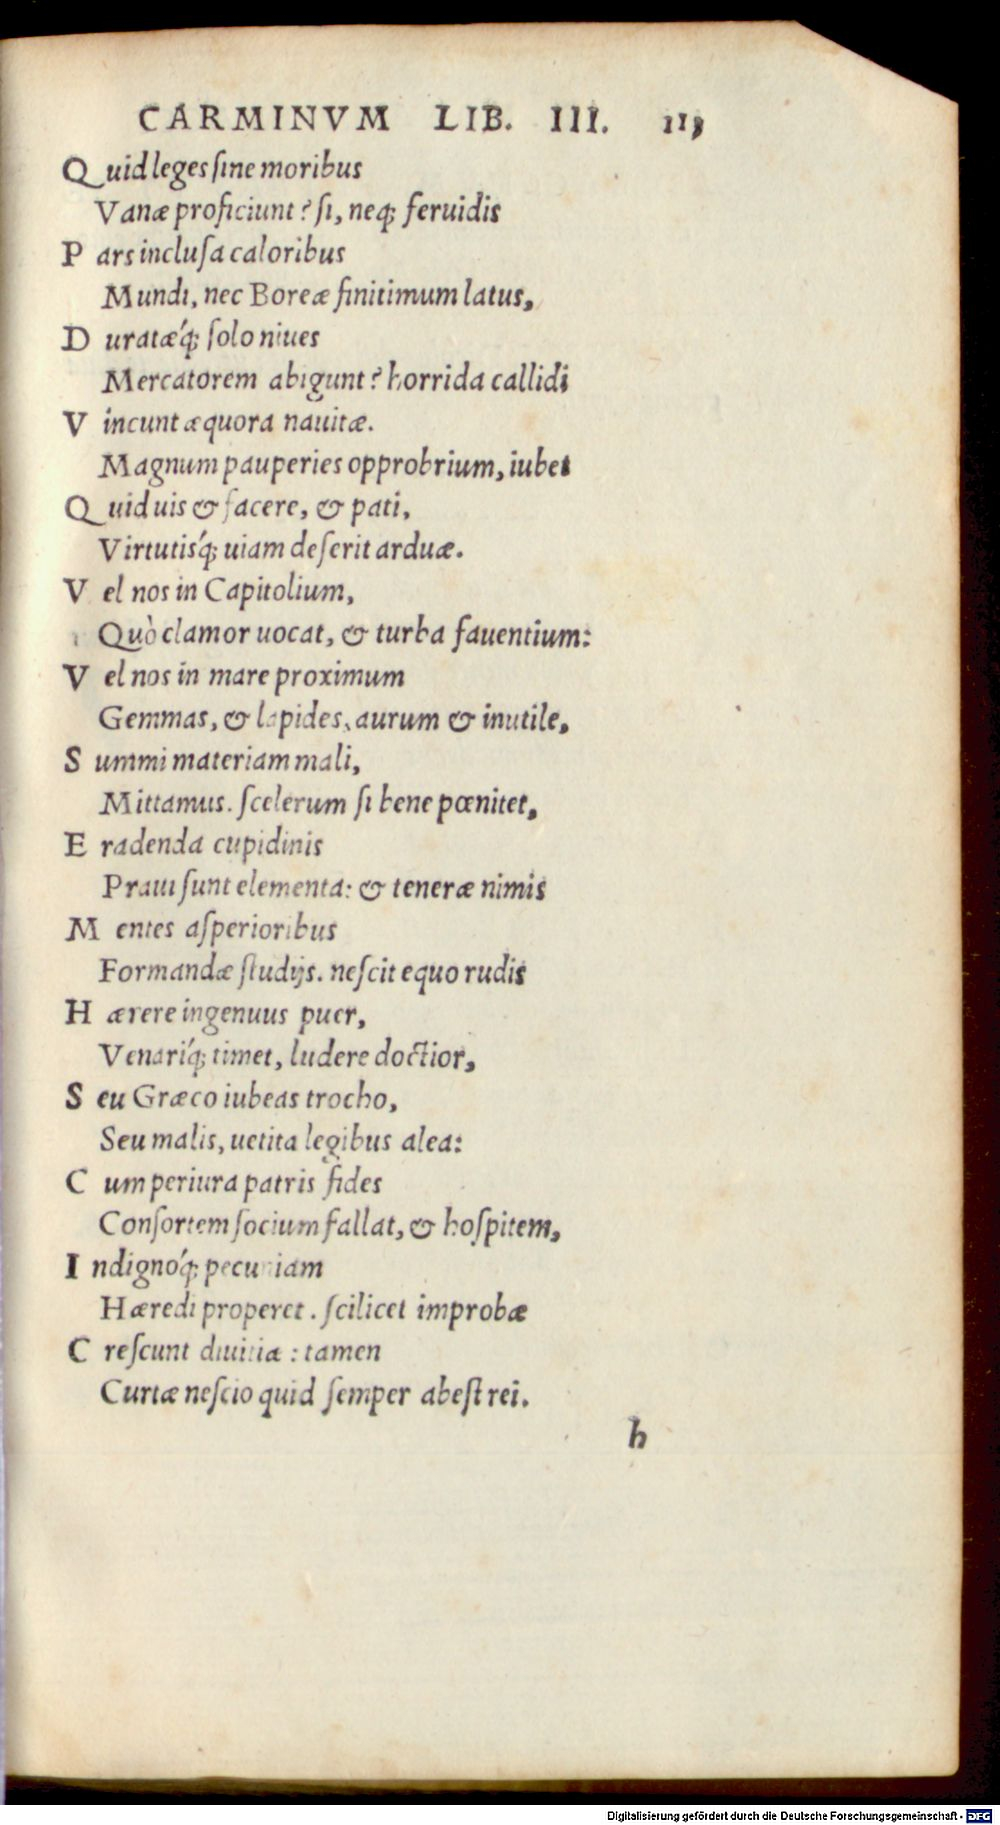 CARMINVM LIB. III. 113
Q uid leges ſine moribus
Vanæ proficiunt? ſi, neq; feruidis
P ars incluſa caloribus
Mundi, nec Boreæ finitimum latus,
D uratæ'q; ſolo niues
Mercatorem abigunt? horrida callidi
V incunt æquora nauitæ.
Magnum pauperies opprobrium, iubet
Q uid uis & facere, & pati,
Virtutis'q; uiam deſerit arduæ.
V el nos in Capitolium,
Quò clamor uocat, & turba fauentium:
V el nos in mare proximum
Gemmas, & lapides, aurum & inutile,
S ummi materiam mali,
Mittamus. ſcelerum ſi bene pœnitet,
E radenda cupidinis
Praui ſunt elementa: & teneræ nimis
M entes aſperioribus
Formandæ ſtudijs. neſcit equo rudis
H ærere ingenuus puer,
Venari'q; timet, ludere doctior,
S eu Græco iubeas trocho,
Seu malis, uetita legibus alea:
C um periura patris fides
Conſortem ſocium fallat, & hoſpitem,
I ndigno'q; pecuniam
Hæredi properet. ſcilicet improbæ
C reſcunt diuitiæ: tamen
Curtæ neſcio quid ſemper abeſt rei.
h
Digitalisierung gefördert durch die Deutsche Forschungsgemeinschaft - DFG